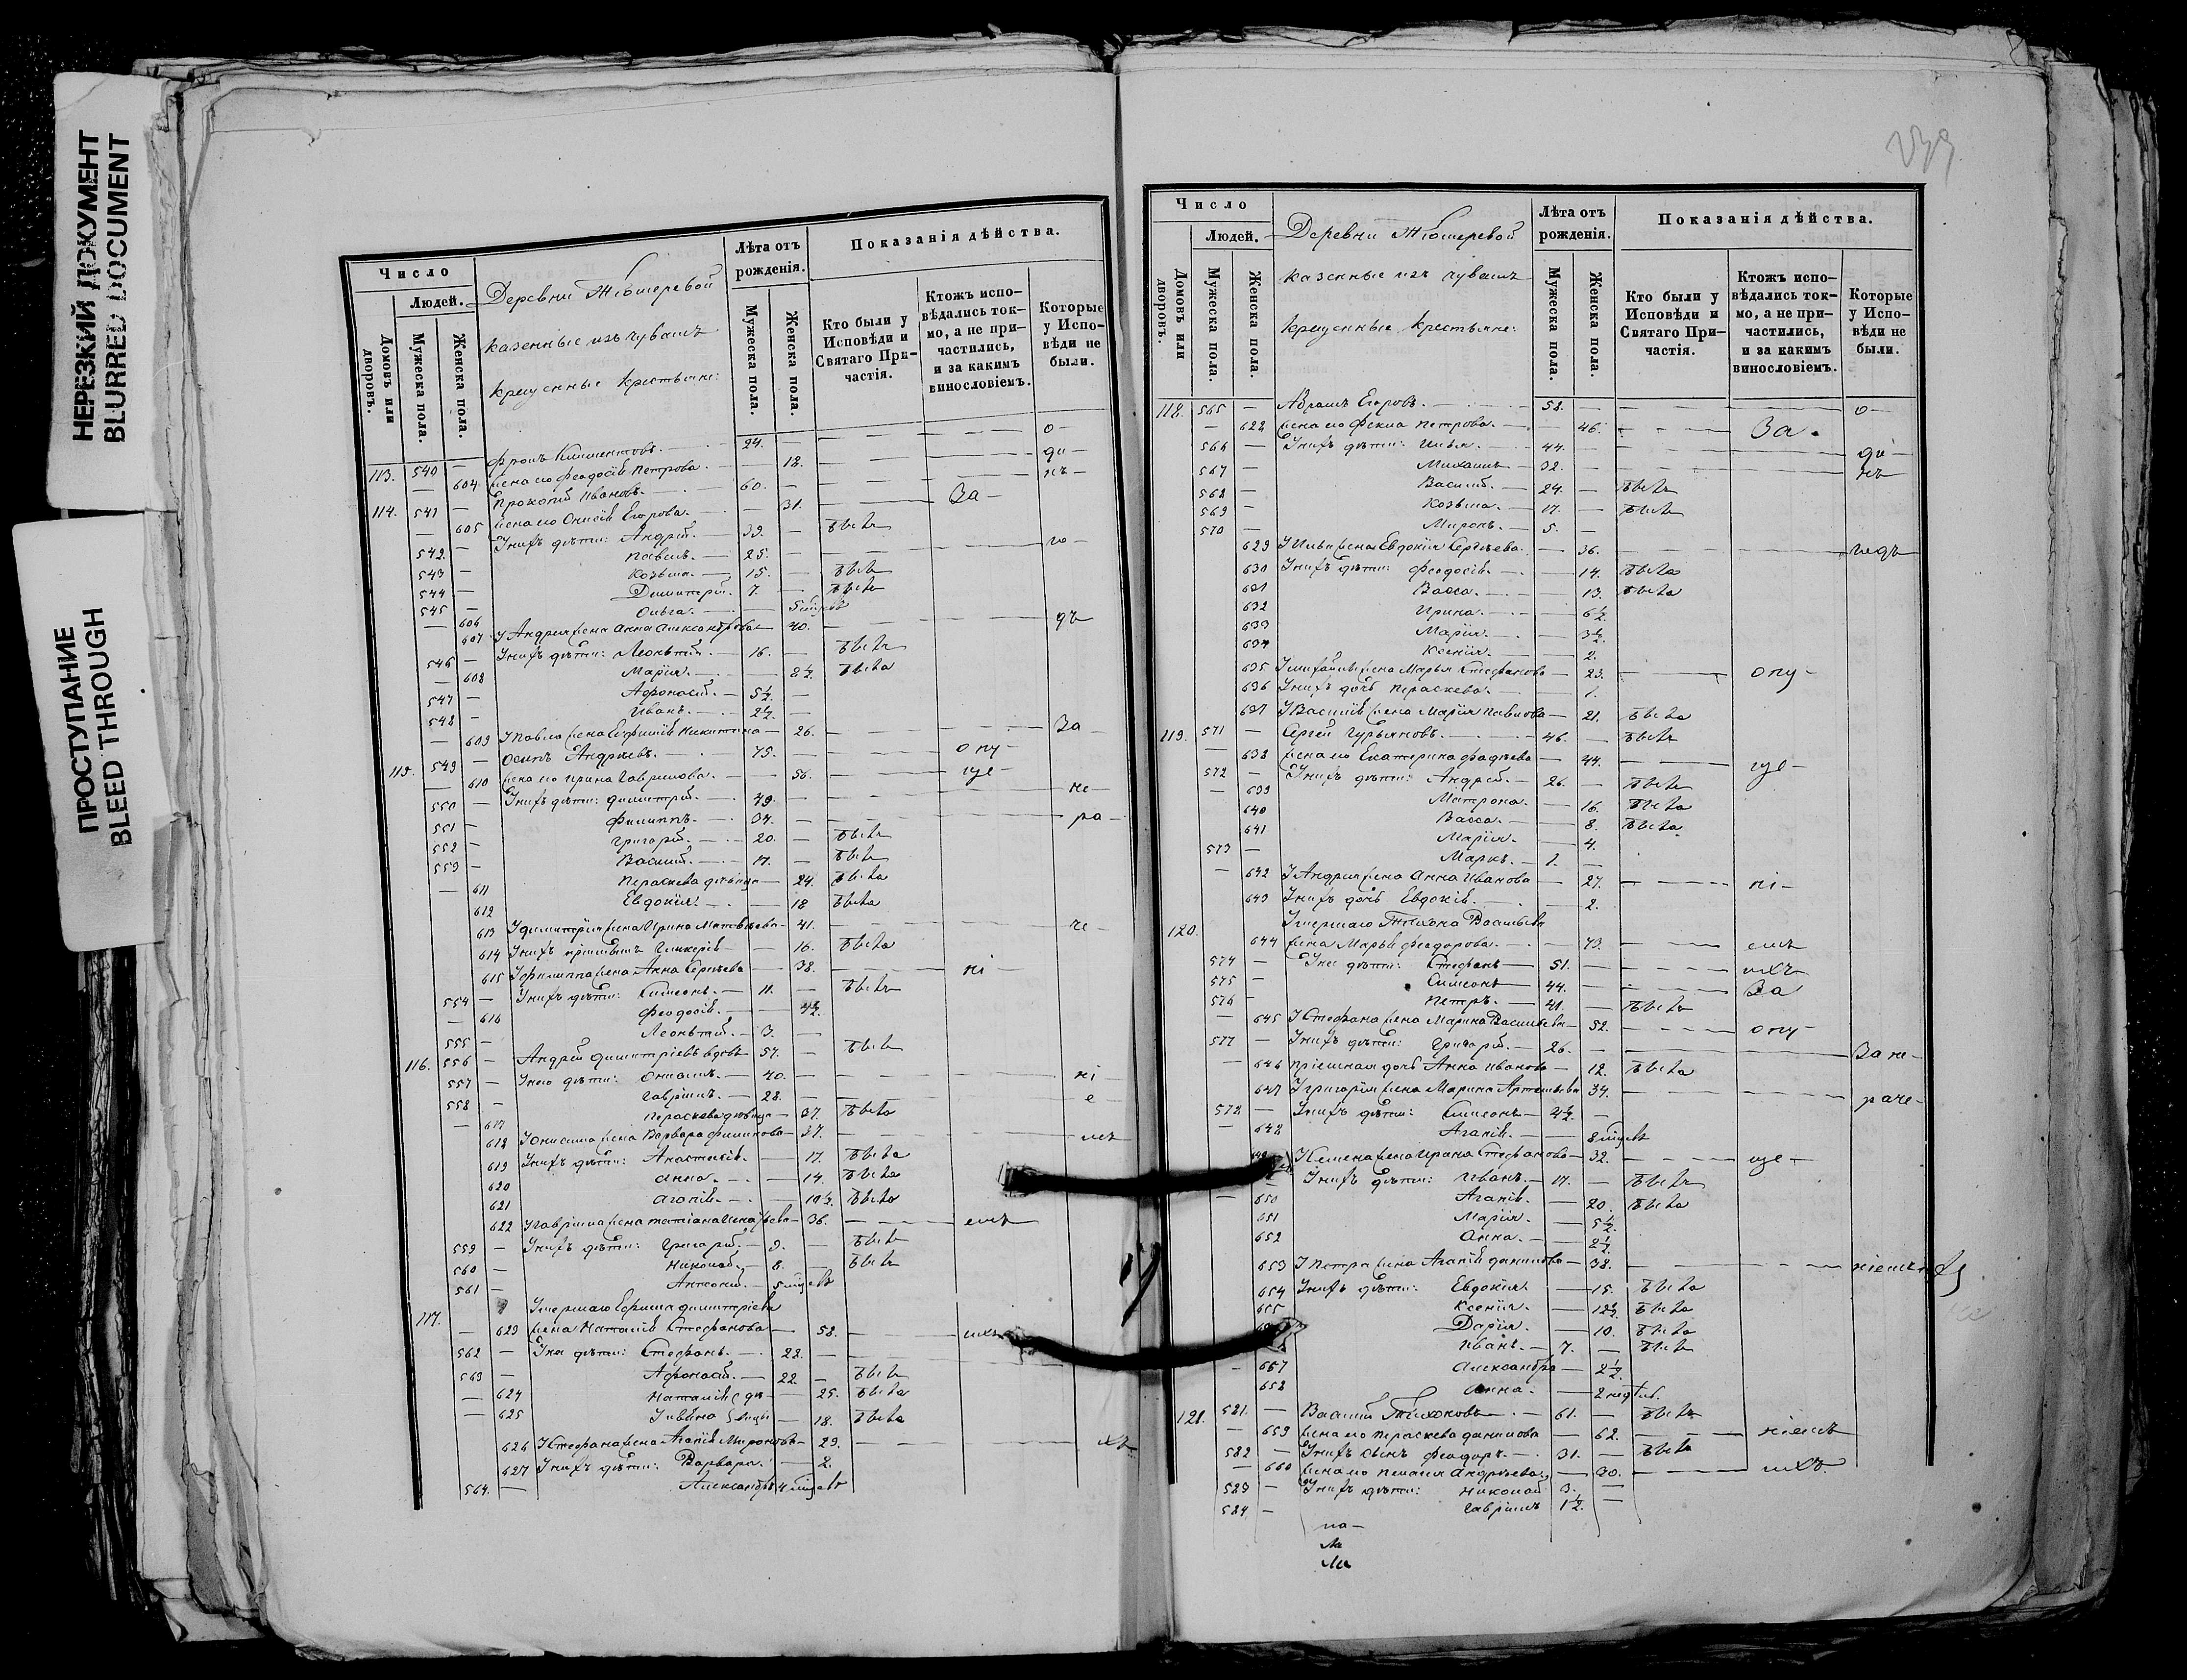 НЕРЕЗКИЙ ДОКУМЕНТ
BLURRED DOCUMENT
ПРОСТУПАНИЕ
BLEED THROUGH
Число
Людей.
Домовъ или дворовъ.
Мужеска пола.
Женска пола.
Деревни Тюмеревой
казенные изъ чувашъ
крещеные крестьяне:
Лѣта отъ рожденія.
Мужеска пола.
Женска пола.
Показанія дѣйства.
Кто были у Исповѣди и Святаго Причастія.
Ктожъ исповѣдались токмо, а не причастились, и за какимъ винословіемъ.
Которые у Исповѣди не были.
113. 540 — Климентовъ. 24. — о-
— 604 жена его Феодосія Петрова. — 18. ди-
114. 541 — Прокопій Ивановъ. 60. — нъ-
— 605 жена его Онисія Егорова. — 31. За-
542 — У нихъ дѣти: Андрей. 39. —
543 — Павелъ. 25. — го-
544 — Козьма. 15. —
545 — Димитрій. 7. —
— 606 Ольга. —
607 У Андрея жена Анна Александрова — 40. дъ
546 — У нихъ дѣти: Леонтій. 16. —
— 608 Марія. — 8½.
547 — Афонасій. 5½. —
548 — Иванъ. 2½. —
— 609 У Павла жена Никитина — 26. За
115. 549 — Осипъ Андреевъ. 75. — опу-
— 610 жена его Ирина Гаврилова. — 56. ще-
550 — У нихъ дѣти: Димитрій. 49. — не-
551 — Филиппъ. 34. — ра-
552 — Григорій. 20. —
553 — Василій. 17. —
— 611 Параскева дѣвица — 24.
612 Евдокія. — 18
613 У Димитрія жена Ирина Матвѣева — 41. че-
614 У нихъ Гликерія — 16.
615 У Филиппа жена Анна Сергѣева — 38. ні-
554 — У нихъ дѣти: Симеонъ. 11. —
— 616 Феодосія. — 4½.
555 — Леонтій. 3. —
116. 556 — Андрей Димитріевъ вдовъ 57. —
557 — У него дѣти: Онисимъ. 40. — ні-
558 — Гавріилъ. 28. — е-
— 617 Параскева дѣвица — 37.
618 У Онисима жена Варвара Филипова — 37. мъ
619 У нихъ дѣти: Анастасія. — 17.
620 Анна. — 14.
621 Агапія. — 10½.
622 У Гавріила жена Татіана — 36. емъ
559 — У нихъ дѣти: Григорій. 9. —
560 — Николай. 8. —
561 — Антоній. 5 мѣсяц.
117. Умершаго Ефима Димитріева
— 623 жена Наталія Стефанова — 58. ихъ
562 — У нея дѣти: Стефанъ. 28. —
563 — Афонасій. 22. —
— 624 Наталія — 25.
— 625 — 18.
626 У Стефана жена Агапія Миронова — 29. хъ
627 У нихъ дѣти: Варвара. — 2.
564. — Александръ 4 мѣсяц.
Число
Людей.
Домовъ или дворовъ.
Мужеска пола.
Женска пола.
Деревни Тюмеревой
казенные изъ чувашъ
крещеные крестьяне:
Лѣта отъ рожденія.
Мужеска пола.
Женска пола.
Показанія дѣйства.
Кто были у Исповѣди и Святаго Причастія.
Ктожъ исповѣдались токмо, а не причастились, и за какимъ винословіемъ.
Которые у Исповѣди не были.
118. 565 — Абрамъ Егоровъ. 58. — о-
— 628 жена его Фекла Петрова. — 46. За-
566 — У нихъ дѣти: Илья. 44. — ди-
567 — Михаилъ 32. — нъ
568 — Василій. 24. —
569 — Козьма. 17. —
570 — Миронъ. 5. —
629 У Ильи жена Евдокія Сергѣева. — 36. годъ
630 У нихъ дѣти: Феодосія. — 14.
631 Васса. — 13.
632 Ирина. — 6½
633 Марія. — 3½.
634 Ксенія. — 2.
635 У Михаила жена Марья Стефанова — 23. опу-
636 У нихъ дочь Параскева. — 1.
637 У Василія жена Марія Павлова — 21.
119. 571 — Сергей Гурьяновъ. 46. —
— 638 жена его Екатерина Фадѣева — 44. ще-
572 — У нихъ дѣти: Андрей. 26. —
— 639 Матрона. — 16.
640 Васса. — 8.
641 Марія. — 4.
573 — Маркъ. 1. —
— 642 У Андрея жена Анна Иванова — 27. ні-
643 У нихъ дочь Евдокія. — 2.
120. Умершаго Тихона Васильева
644 жена Марья Феодорова. — 73. емъ
574 — У нея дѣти: Стефанъ 51. — ихъ
575 — Симеонъ 44. — За
576 — Петръ. 41. —
— 645 У Стефана жена Марина Васильева — 52. опу-
577 — У нихъ дѣти: Григорій. 26. — За не-
— 646 дочь Анна Иванова — 12.
647 У Григорія жена Марина Артемьева 34. раче-
578 — У нихъ дѣти: Симеонъ 4½. —
— 648 Агапія. — 8 мѣсяц.
У Семена жена Ирина Стефанова — 32. ще-
У нихъ дѣти: Иванъ. 17. —
— 650 Агапія. — 20.
651 Марія. — 5½.
652 Анна. — 2½.
653 У Петра жена Агапія Данилова — 38. ніемъ
654 У нихъ дѣти: Евдокія. — 15.
655 Ксенія. — 12½.
Дарія. — 10.
Иванъ. 7. —
— 657 Александра — 2½.
658 Анна. — 2 нед.
121. 581. — Василій Тихоновъ 61. —
— 659 жена его Параскева Данилова — 62. ніемъ
582 — У нихъ сынъ Феодоръ. 31. —
— 660 жена его Пелагея Андреева. — 30. ихъ.
583 — У нихъ дѣти: Николай 3. —
584 — Гавріилъ 1½. —